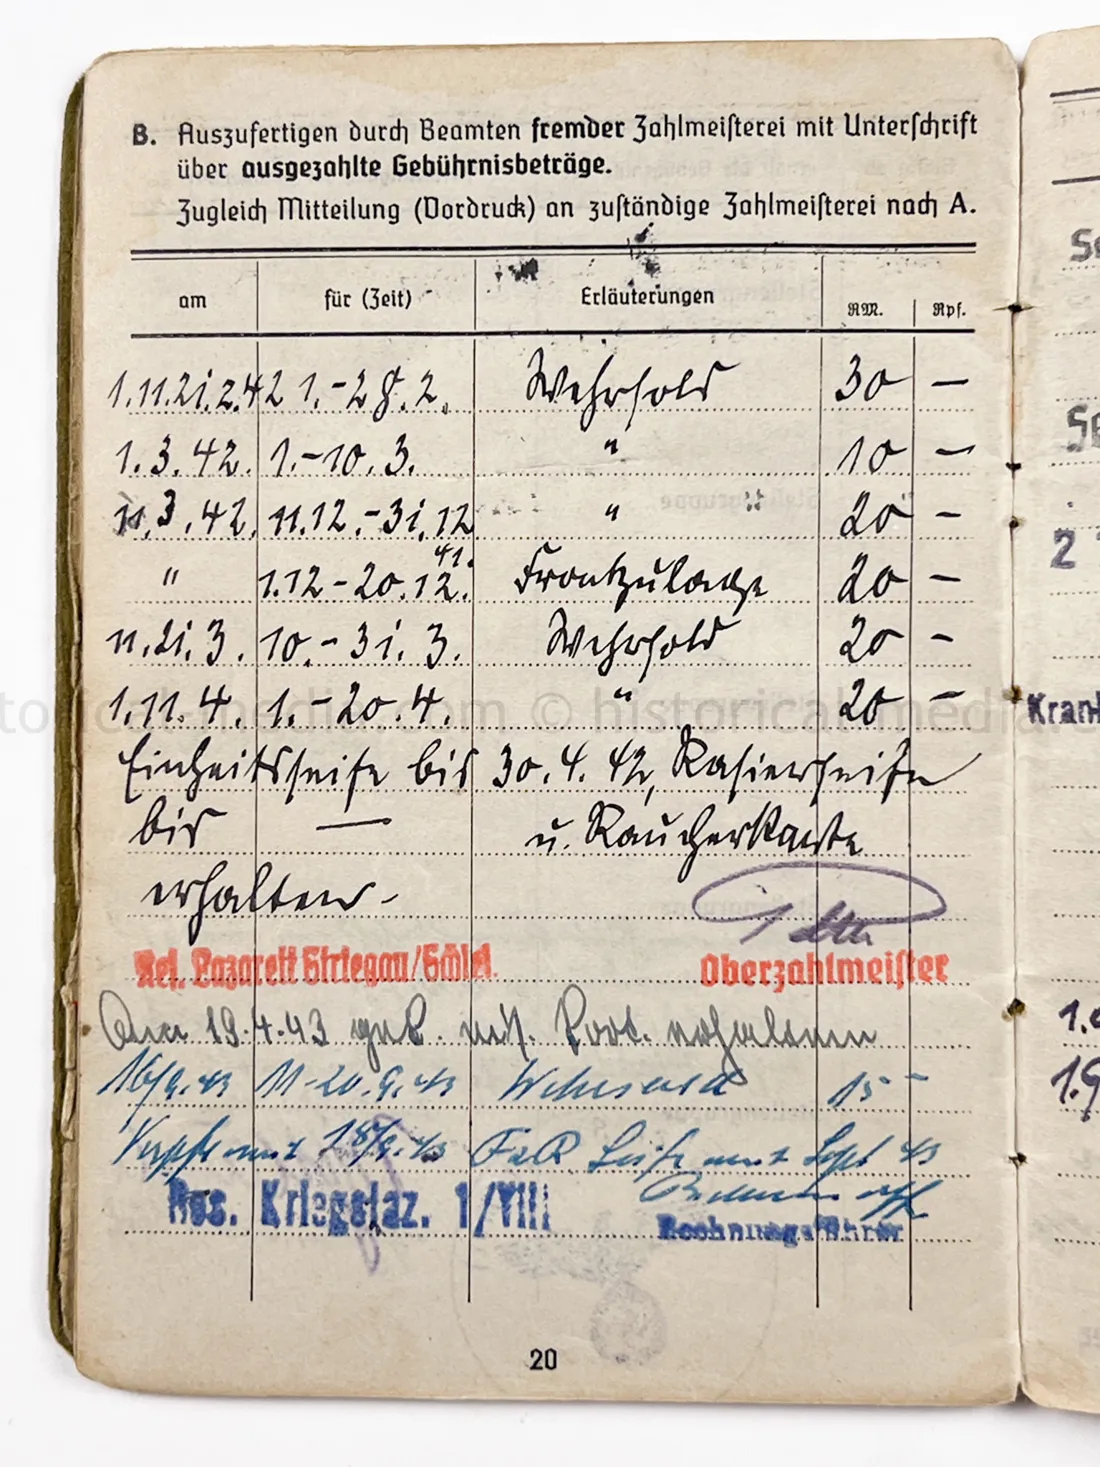 B. Auszufertigen durch Beamten fremder Zahlmeisterei mit Unterschrift
über ausgezahlte Gebührnisbeträge.
Zugleich Mitteilung (Vordruck) an zuständige Zahlmeisterei nach A.
am für (Zeit) Erläuterungen RM. Rpf.
1.11.21.2.42 1.-28.2. Wehrsold 30 —
1.3.42. 1.-10.3. " 10 —
11.3.42. 11.12.-31.12 " 20 —
41.
" 1.12-20.12. Frontzulage 20 —
11.21.3. 10.-31.3. Wehrsold 20 -
1.11.4. 1.-20.4. " 20 —
Einheitsseife bis 30.4.42, Rasierseife
bis — u. Raucherkarte
erhalten-
Res. Lazarett Striegau/Schles.
Oberzahlmeister
Am 19.4.43 erhalten
16/9.43 11-20.9.43 Wehrsold 15 -
18/9.43 Seife Sept 43
Res. Kriegslaz. 1/VIII
Rechnungsführer
20
Se
2
Kran
1.9
historical-media.com © historical-media.c